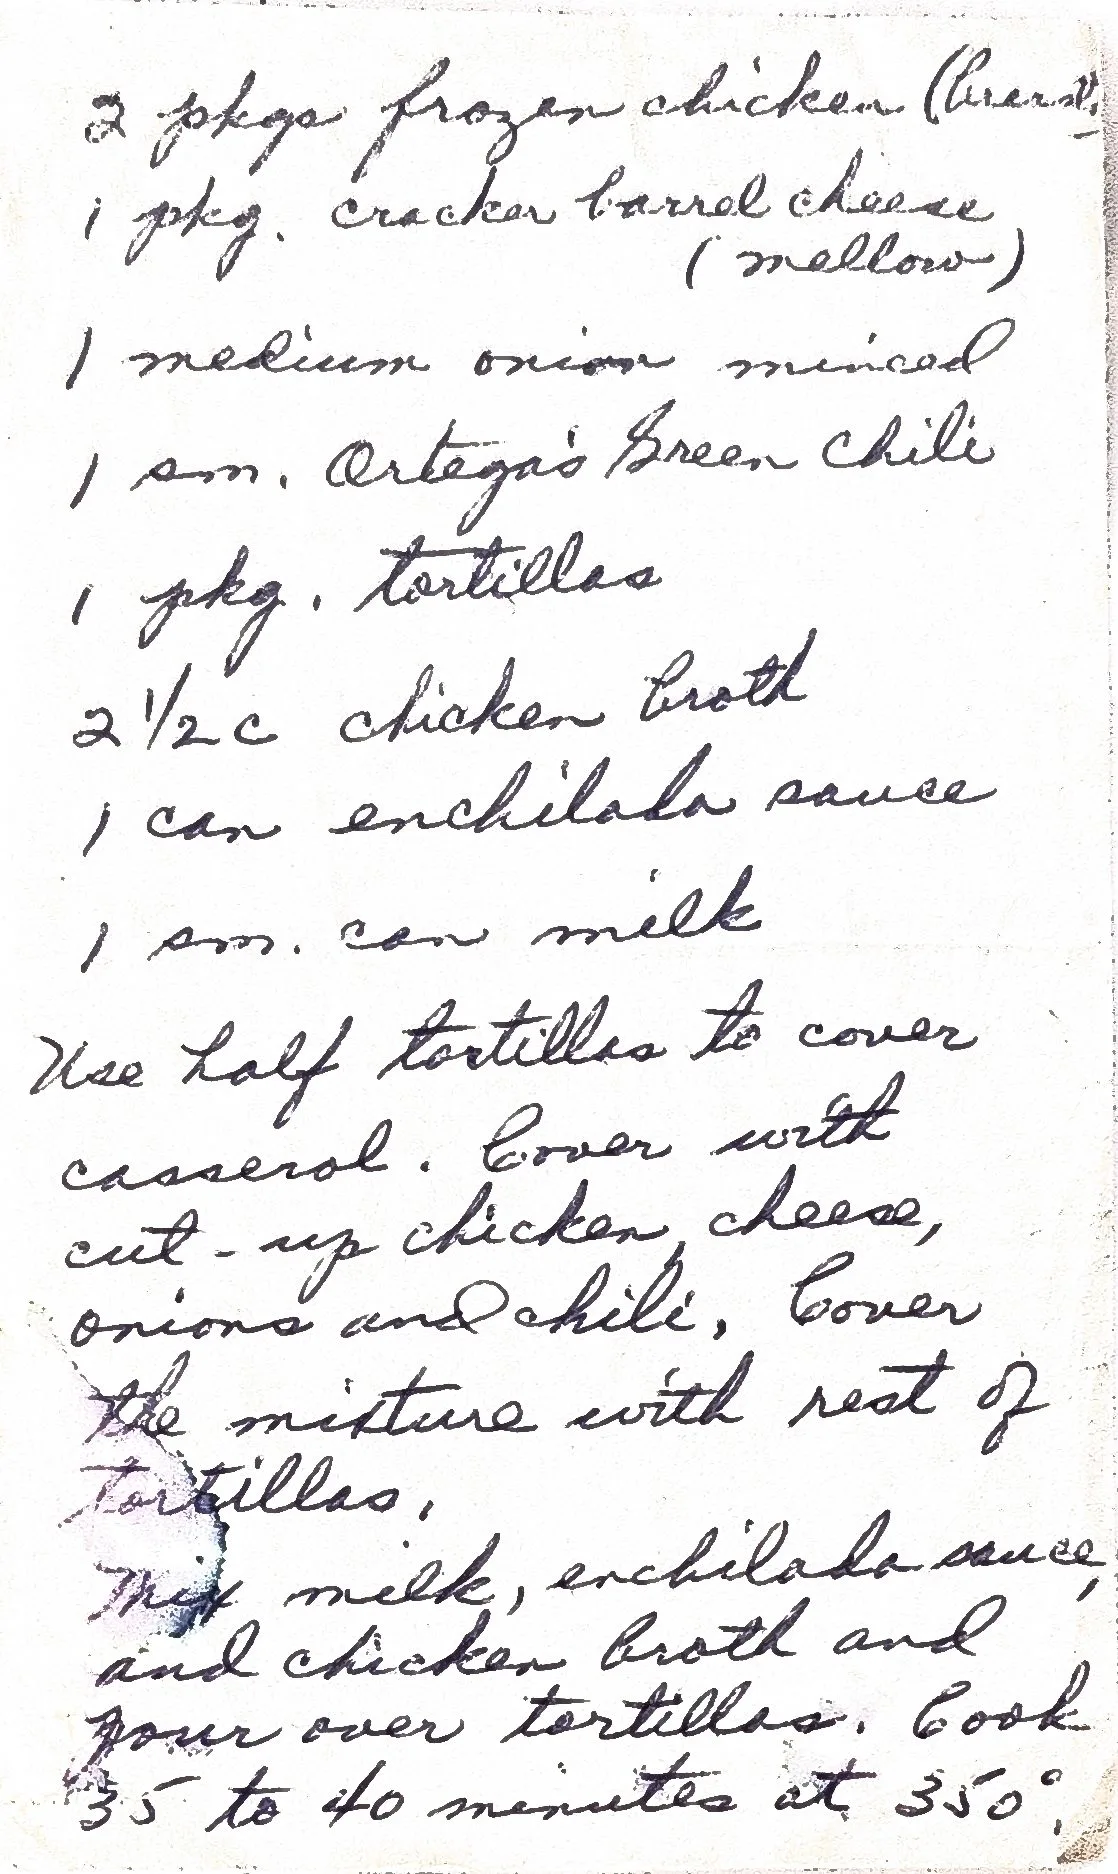 2 pkgs frozen chicken (breast)
1 pkg. cracker barrel cheese
(mellow)
1 medium onion minced
1 sm. Ortega's Green Chili
1 pkg. tortillas
2 1/2 c chicken broth
1 can enchilada sauce
1 sm. can milk
Use half tortillas to cover
casserol. Cover with
cut-up chicken, cheese,
onions and chili. Cover
the mixture with rest of
tortillas.
Mix milk, enchilada sauce,
and chicken broth and
pour over tortillas. Cook
35 to 40 minutes at 350°.